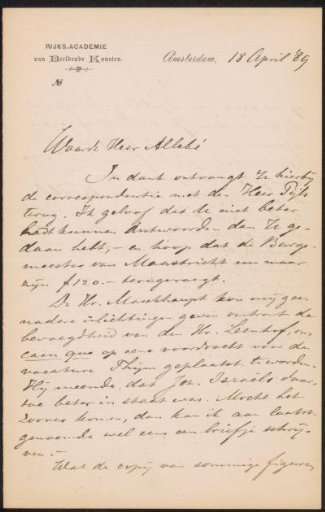 RIJKS-ACADEMIE
van Beeldende Kunsten.
Amsterdam, 18 April '89
No
Waarde Heer Allebé
In dank ontvangt U hierbij
de correspondentie met den Heer
terug. Ik geloof dat U niet beter
hadt kunnen antwoorden dan U ge-
daan hebt, – en hoop dat de Burge-
meester van Maastricht nu maar
zijn f120.–
De Hr. kon mij geen
nadere inlichtingen geven omtrent de
bevoegdheid van den Hr. om
casu quo op eene voordracht voor de
vacature Thijm geplaatst te worden.
Hij meende dat Joz. Israëls daar-
toe beter in staat was. Mocht het
zoover komen, dan kan ik aan laatst-
genoemde wel eens een briefje schrij-
ven. –
Wat de copij van sommige figuren